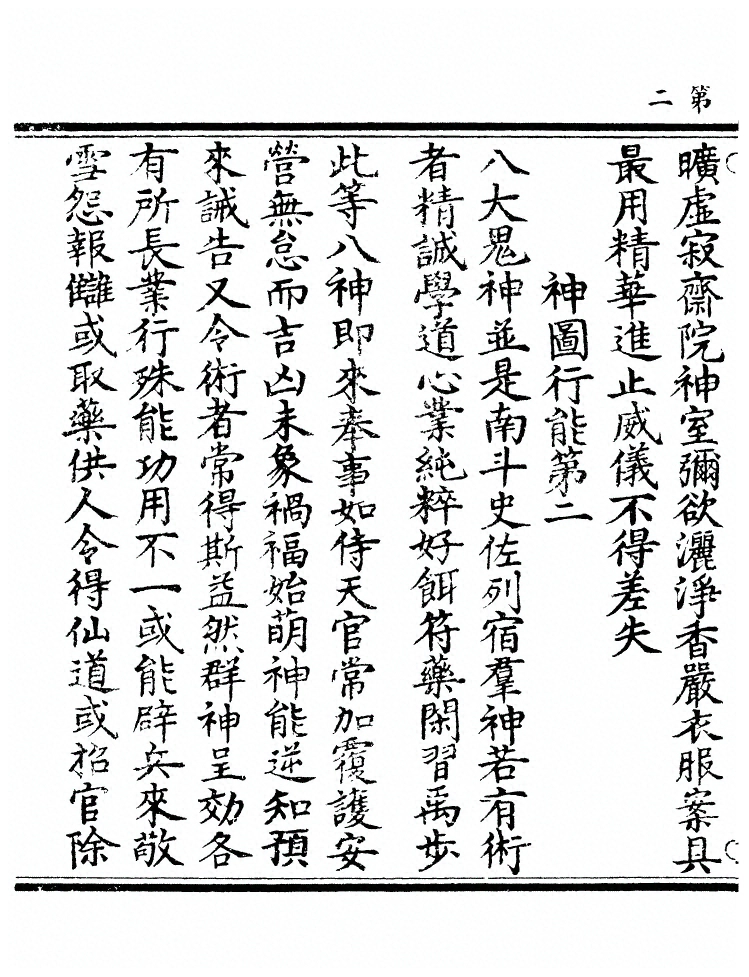 第二
曠虛寂齋院神室彌欲灑淨香嚴衣服案具
最用精華進止威儀不得差失
神圖行能第二
八大鬼神並是南斗史佐列宿羣神若有術
者精誠學道心業純粹好餌符藥閑習禹步
此等八神即來奉事如侍天官常加覆護安
營無怠而吉凶未象禍福始萌神能逆知預
來誡告又令術者常得斯益然群神呈効各
有所長業行殊能功用不一或能辟兵來敵
雪怨報讎或取藥供人令得仙道或招官除